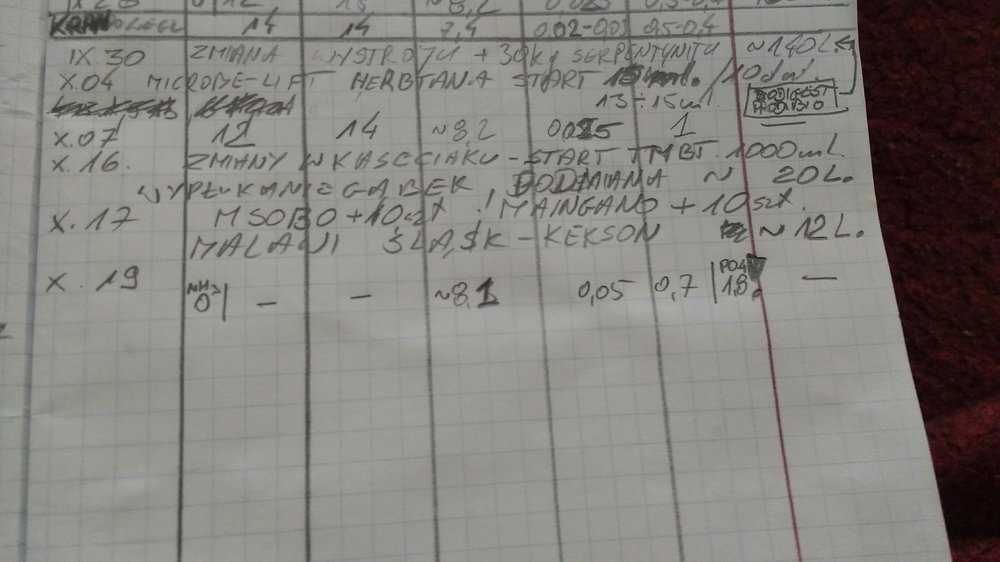 12 15 ~8,2 0,025
14 14 7,4 0,02-0,03 0,5-0,4
IX.30 ZMIANA WYSTROJU + 30kg SERPENTYNITU ~140L
X.04 MICROBE-LIFT HERBTANA START 15ml. /10dni.
13÷15ml.
X.07 12 14 ~8,2 0,025 1
X.16. ZMIANY W KASECIAKU - START TMBT. 1000ml.
WYPŁUKANIE GĄBEK, PODMIANA ~ 20L.
X.17 MSOBO + 10szt. MAINGANO + 10szt.
MALAWI ŚLĄSK - KEKSON ~ 12L.
X.19 NH3 0 - - ~8,1 0,05 0,7 PO4 1,8 -